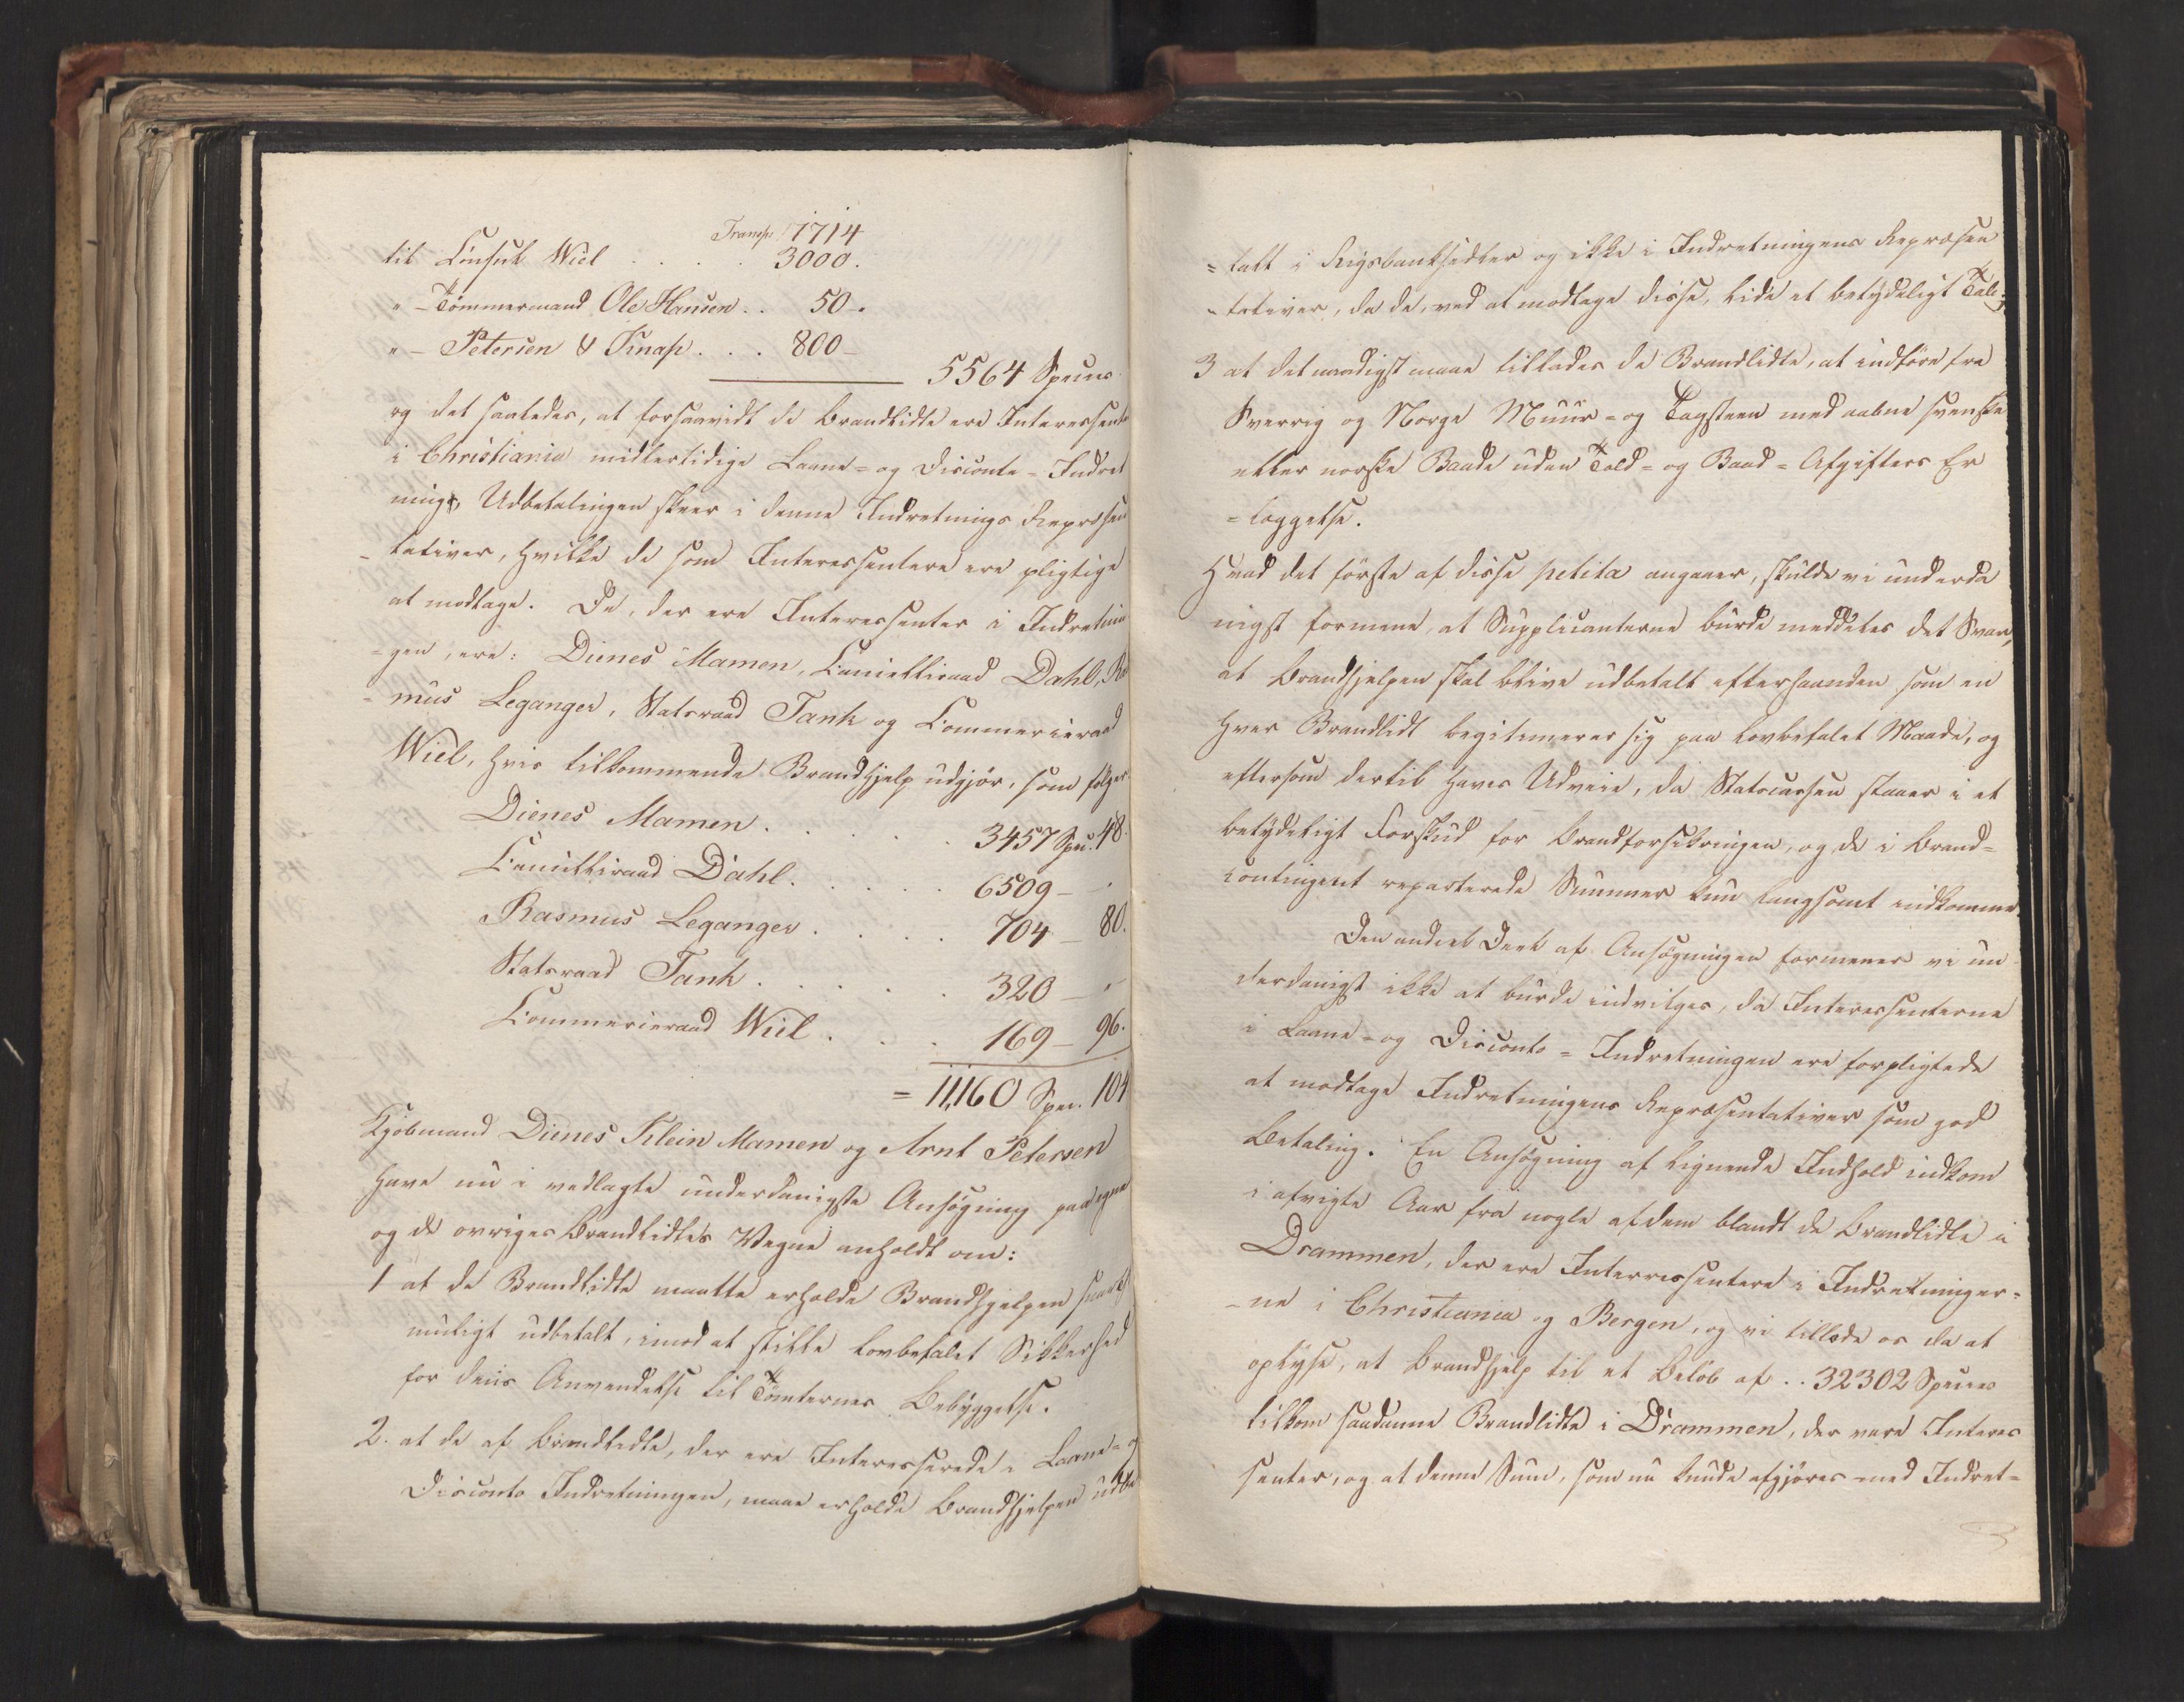 Transp: 1714
til Consul Wiel . . . . 3000.
" - Tömmermand Ole Hansen . . 50 -.
" - Petersen & Knap . . . 800 -
5564 Species
og det saaledes, at forsaavidt de Brandlidte ere Interessente
i Christiania midlertidige Laane- og Disconto-Indret
nings, Udbetalingen skeer i denne Indretnings Repræsen
-tativer, hvilke de som Interessentere ere pligtige
at modtage. De, der ere Interessenter i Indretnin
=gen, ere: Dienes Mamen, Cancelliraad Dahl, Ra
=mus Leganger, Statsraad Tank og Commerceraad
Wiel, hvis tilkommende Brandhjelp udgjör, som fölger
Dienes Mamen . . . . . 3457 Spec. 48.
Cancelliraad Dahl . . . . . 6509 - "
Rasmus Leganger . . . . 704 - 80.
Statsraad Tank . . . . . 320 - "
Commerceraad Wiel . . . 169 - 96.
= 11,160 Spec. 104
Kjöbmand Dienes Klein Mamen og Arnt Petersen
have nu i vedlagte underdanigste Ansögning paa egne
og de övriges Brandlidtes Vegne anholdt om:
1 at de Brandlidte maatte erholde Brandhjelpen snarest
muligt udbetalt, imod at stille lovbefalet Sikkerhed
for dens Anvendelse til Tomternes Bebyggelse.
2. at de af Brandlidte, der ere Interesserede i Laane- og
Disconto Indretningen, maae erholde Brandhjelpen udbe
=talt i Rigsbanksedler og ikke i Indretningens Repræsen
-tativer, da de, ved at modtage disse, lide et betydeligt Tab;
3 at det naadigst maae tillades de Brandlidte, at indföre fra
Sverrig og Norge Muur- og Tagsteen med aabne svenske
eller norske Baade uden Told- og Baad-Afgifters Er
=læggelse.
Hvad det förste af disse petita angaaer, skulde vi underda
nigst formene, at Supplicanterne burde meddeles det Svar,
at Brandhjelpen skal blive udbetalt efterhaanden som en
hver Brandlidt legitimerer sig paa lovbefalet Maade, og
eftersom dertil haves Udveie, da Statscassen staaer i et
betydeligt Forskud for Brandforsikringen, og de i Brand=
contingent reparterede Summer kun langsomt indkomme.
Den anden Deel af Ansögningen formener vi un
derdanigst ikke at burde indvilges, da Interessenterne
i Laane- og Disconto-Indretningen ere forpligtede
at modtage Indretningens Repræsentativer som god
Betaling. En Ansögning af lignende Indhold indkom
i afvigte Aar fra nogle af dem blandt de Brandlidte i
Drammen, der ere Interressentere i Indretninger=
-ne i Christiania og Bergen, og vi tillode os da at
oplyse, at Brandhjelp til et Belöb af . . 32302 Species
tilkom saadanne Brandlidte i Drammen, der vare Interes
senter, og at denne Sum, som nu kunde afgjöres med Indret=